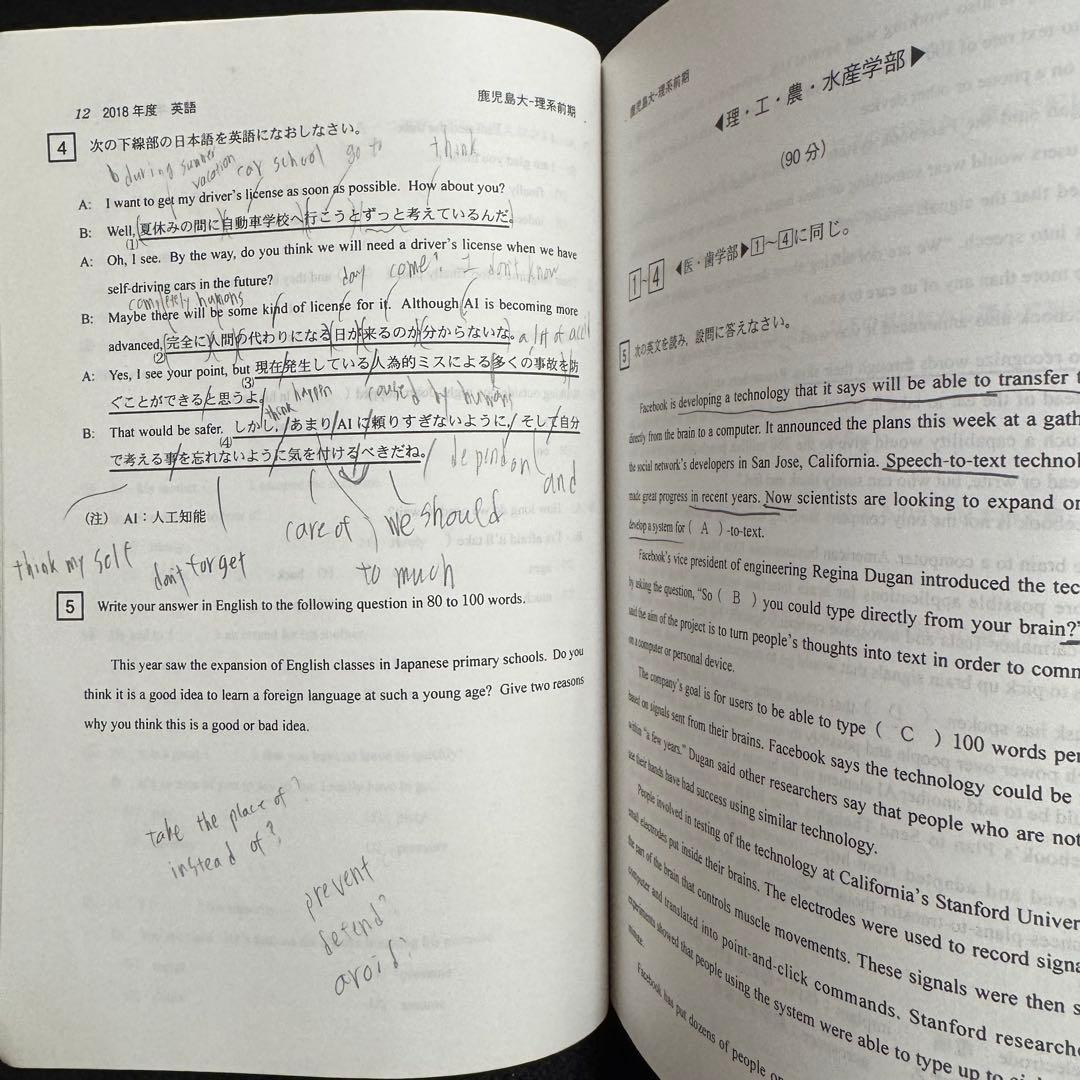 12 2018年度 英語
鹿児島大-理系前期
4 次の下線部の日本語を英語になおしなさい。
during summer vacation car school go to think
A: I want to get my driver's license as soon as possible. How about you?
B: Well, 夏休みの間に自動車学校へ行こうとずっと考えているんだ。
(1)
A: Oh, I see. By the way, do you think we will need a driver's license when we have
self-driving cars in the future?
day come? I don't know
completely humans
B: Maybe there will be some kind of license for it. Although AI is becoming more
advanced, 完全に人間の代わりになる日が来るのか分からないな。
(2)
a lot of
A: Yes, I see your point, but 現在発生している人為的ミスによる多くの事故を防
(3)
ぐことができると思うよ。
think happen caused by humans
B: That would be safer. しかし，あまりAIに頼りすぎないように，そして自分
(4)
で考える事を忘れないように気を付けるべきだね。
depend on
and
(注) AI：人工知能
care of
we should
think my self
don't forget
to much
5 Write your answer in English to the following question in 80 to 100 words.
This year saw the expansion of English classes in Japanese primary schools. Do you
think it is a good idea to learn a foreign language at such a young age? Give two reasons
why you think this is a good or bad idea.
take the place of?
instead of?
prevent
defend?
avoid?
鹿児島大-理系前期
◀理・工・農・水産学部▶
(90分)
1～4 ◀医・歯学部▶1～4に同じ。
5 次の英文を読み，設問に答えなさい。
Facebook is developing a technology that it says will be able to transfer
directly from the brain to a computer. It announced the plans this week at a
the social network's developers in San Jose, California. Speech-to-text
made great progress in recent years. Now scientists are looking to expand
develop a system for ( A )-to-text.
Facebook's vice president of engineering Regina Dugan introduced the
by asking the question, "So ( B ) you could type directly from your brain?"
said the aim of the project is to turn people's thoughts into text in order to
on a computer or personal device.
The company's goal is for users to be able to type ( C ) 100 words
based on signals sent from their brains. Facebook says the technology could be
within "a few years." Dugan said other researchers say that people who are not
use their hands have had success using similar technology.
People involved in testing of the technology at California's Stanford
small electrodes put inside their brains. The electrodes were used to record
the part of the brain that controls muscle movements. These signals were then
computer and translated into point-and-click commands. Stanford
experiments showed that people using the system were able to type up to
minute.
Facebook has put dozens of people